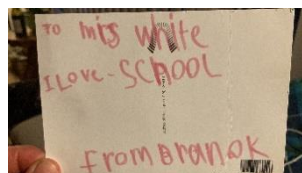 TO mis white
I LOVE - SCHOOL
from Branok